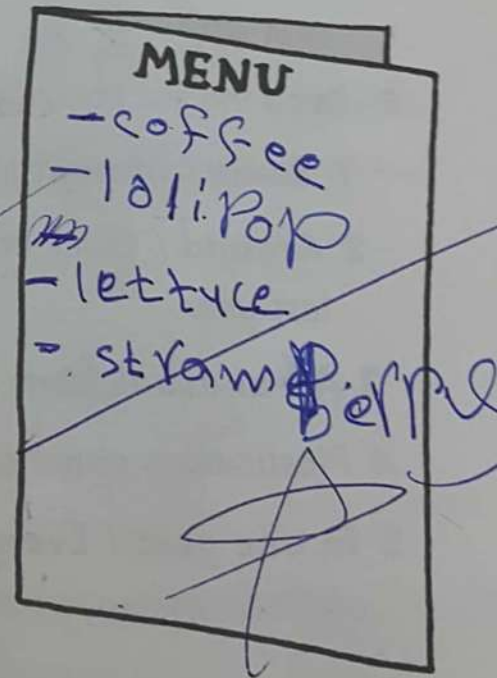 MENU
- coffee
- lolipop
- lettyce
- stramBerry